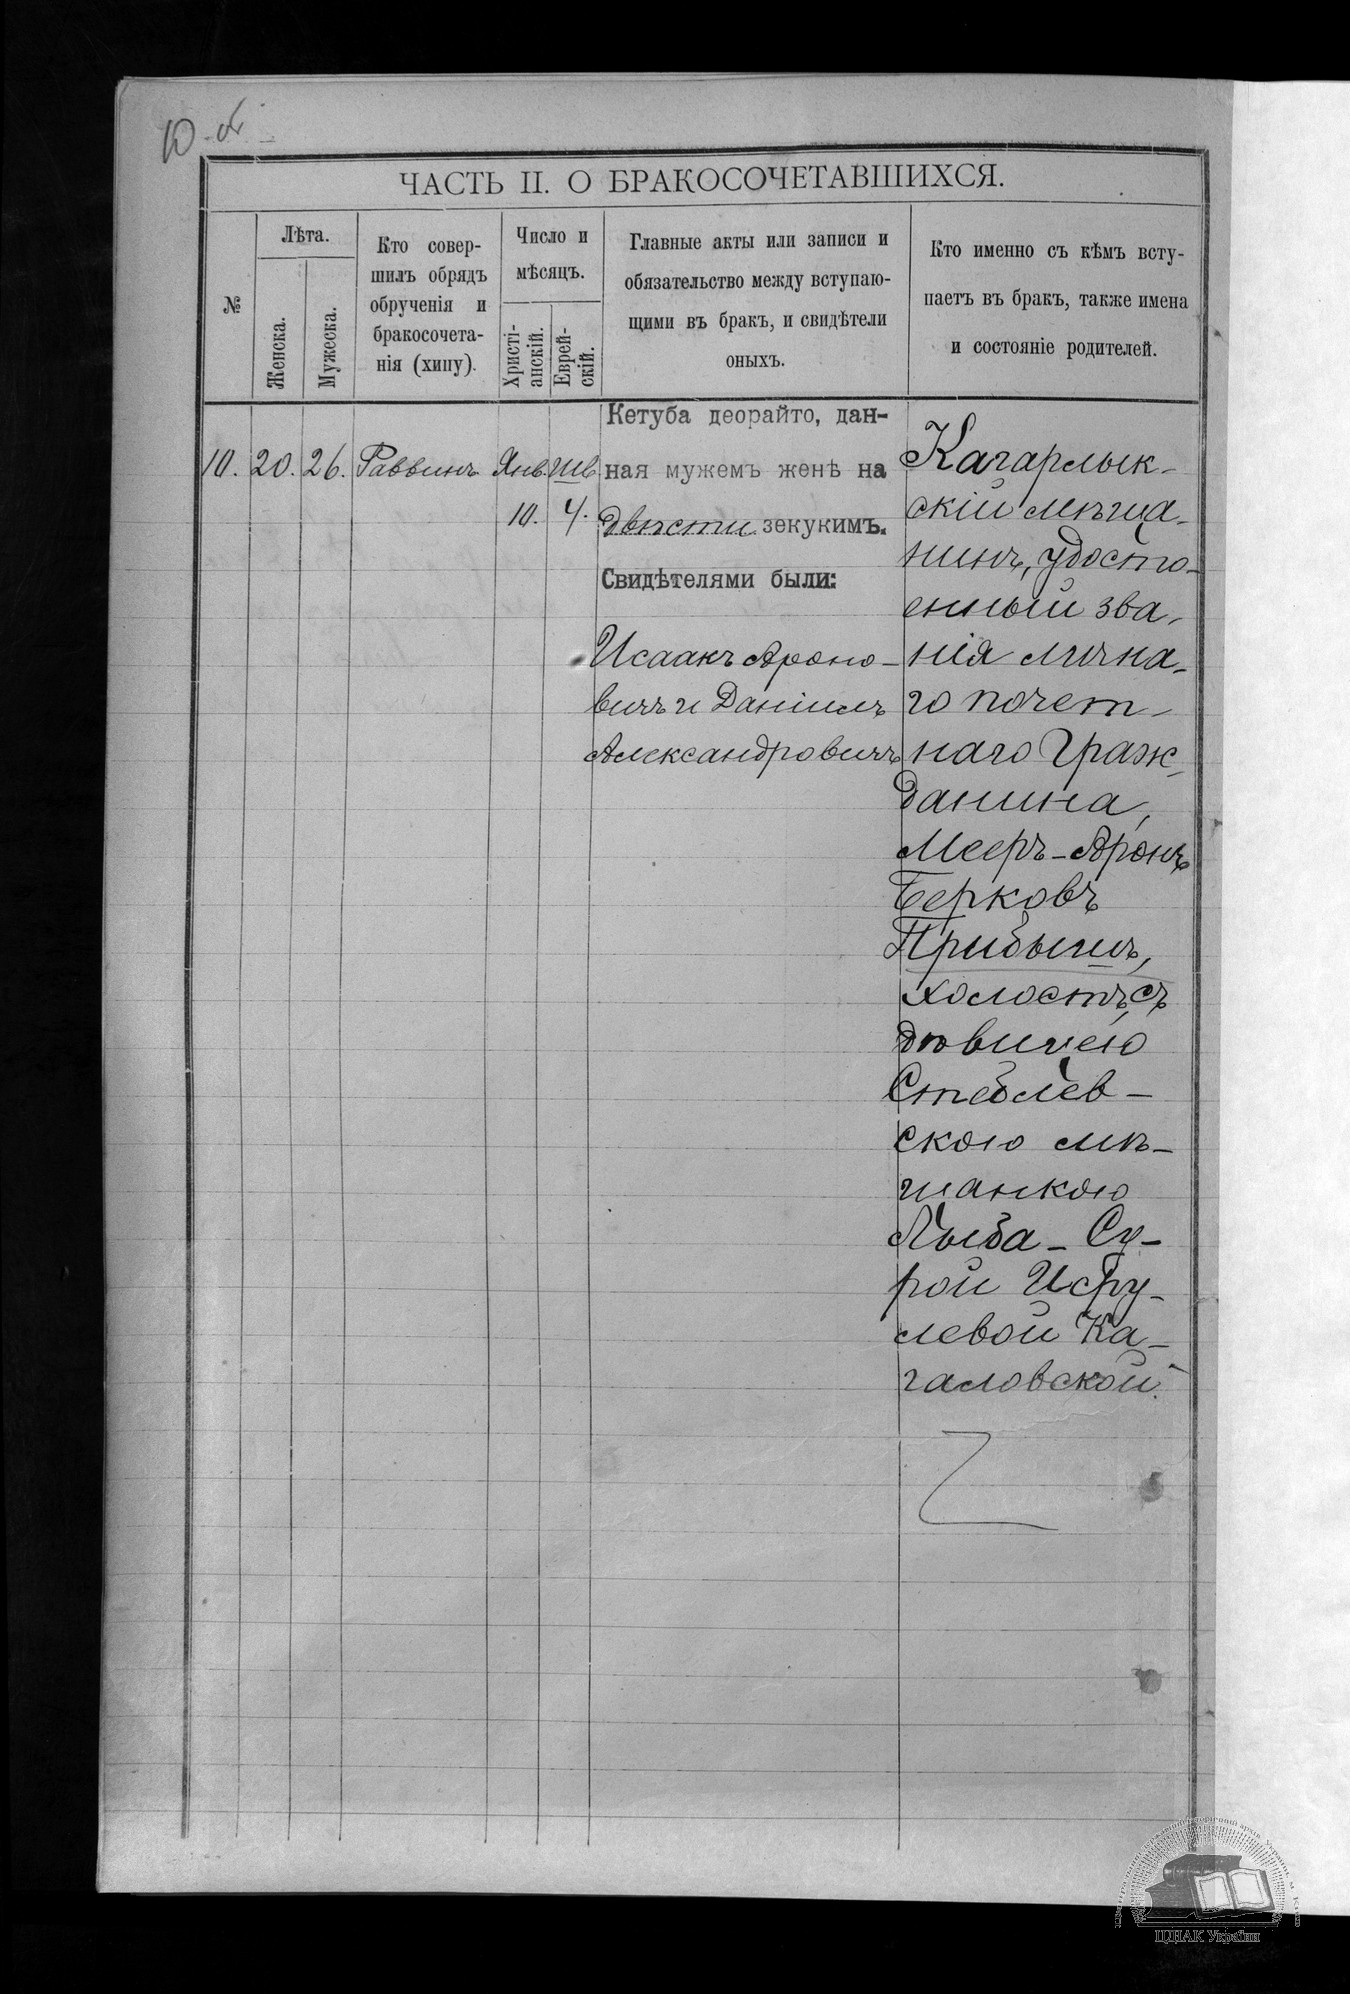 10 об.
ЧАСТЬ II. О БРАКОСОЧЕТАВШИХСЯ.
№
Лѣта.
Женска.
Мужеска.
Кто совер-
шилъ обрядъ
обрученія и
бракосочета-
нія (хипу).
Число и
мѣсяцъ.
Христі-
анскій.
Еврей-
скій.
Главные акты или записи и
обязательство между вступаю-
щими въ бракъ, и свидѣтели
оныхъ.
Кто именно съ кѣмъ всту-
паетъ въ бракъ, также имена
и состояніе родителей.
10.
20.
26.
Раввинъ
Янв.
10.
Шв
4.
Кетуба деорайто, дан-
ная мужемъ женѣ на
двѣсти зекукимъ.
Свидѣтелями были:
Исаакъ Ароно-
вичъ и Даніилъ
Александровичъ
Кагарлык-
скій мѣща-
нинъ, удосто-
енный зва-
нія лична-
го почет-
наго граж-
данина,
Мееръ-Аронъ
Берковъ
Прибышъ,
холостъ, съ
дѣвицею
Стеблев-
скою мѣ-
щанкою
Лыба-Су-
рой Исру-
левой Ка-
галовской.
ЦДІАК України